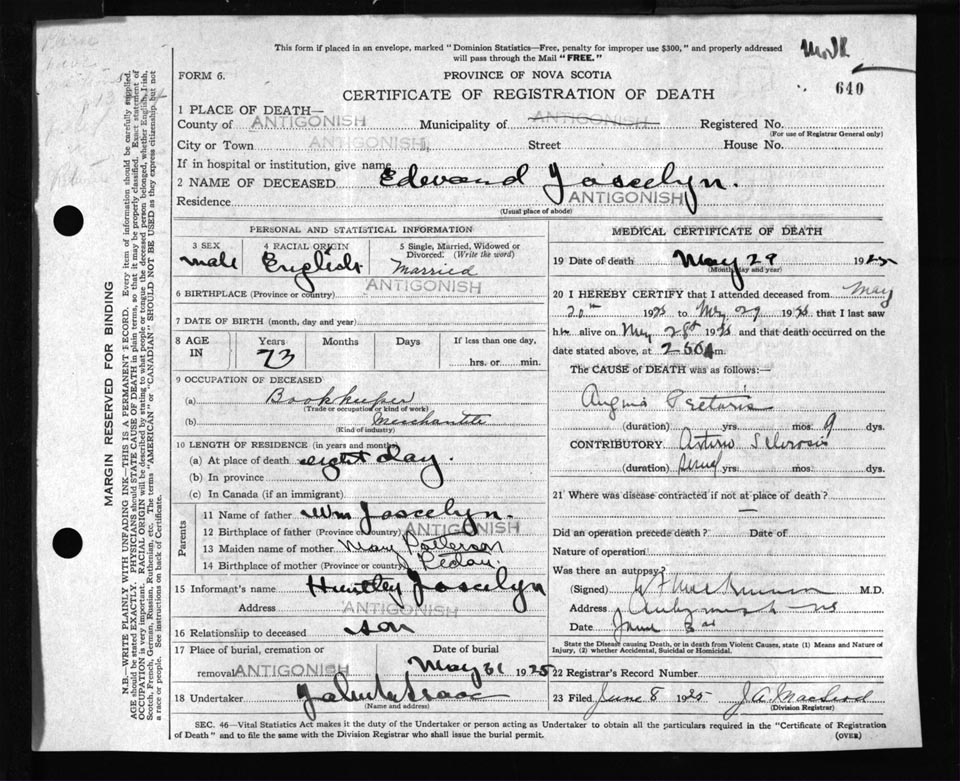 This form if placed in an envelope, marked "Dominion Statistics—Free, penalty for improper use $300," and properly addressed
will pass through the Mail "FREE."
FORM 6.
PROVINCE OF NOVA SCOTIA
640
CERTIFICATE OF REGISTRATION OF DEATH
1 PLACE OF DEATH—
County of ANTIGONISH Municipality of ANTIGONISH Registered No.
(For use of Registrar General only)
City or Town ANTIGONISH Street House No.
If in hospital or institution, give name
2 NAME OF DECEASED Edward Joscelyn.
Residence ANTIGONISH
(Usual place of abode)
PERSONAL AND STATISTICAL INFORMATION
3 SEX 4 RACIAL ORIGIN 5 Single, Married, Widowed or Divorced. (Write the word)
male English Married
6 BIRTHPLACE (Province or country) ANTIGONISH
7 DATE OF BIRTH (month, day and year)
8 AGE IN Years Months Days If less than one day,
73 hrs. or min.
9 OCCUPATION OF DECEASED
(a) Bookkeeper
(Trade or occupation or kind of work)
(b)
(Kind of industry)
10 LENGTH OF RESIDENCE (in years and months)
(a) At place of death eight day.
(b) In province
(c) In Canada (if an immigrant)
Parents
11 Name of father Wm Joscelyn.
12 Birthplace of father (Province or country) ANTIGONISH
13 Maiden name of mother Mary Patterson
14 Birthplace of mother (Province or country)
15 Informant's name Huntley Joscelyn
Address ANTIGONISH
16 Relationship to deceased son
17 Place of burial, cremation or Date of burial
removal ANTIGONISH May 31 1925
18 Undertaker
(Name and address)
MEDICAL CERTIFICATE OF DEATH
19 Date of death May 29 1925
(Month, day and year)
20 I HEREBY CERTIFY that I attended deceased from May
20th 1925 to May 29 1925 that I last saw
h alive on May 28th 1925 and that death occurred on the
date stated above, at m.
The CAUSE of DEATH was as follows:—
Angina Pectoris
(duration) yrs. mos. 9 dys.
CONTRIBUTORY Arterio Sclerosis
(duration) yrs. mos. dys.
21 Where was disease contracted if not at place of death?
—
Did an operation precede death? Date of
Nature of operation
Was there an autopsy?
(Signed) M.D.
Address Antigonish NS
Date June
State the Disease causing Death, or in death from Violent Causes, state (1) Means and Nature of
Injury, (2) whether Accidental, Suicidal or Homicidal.
22 Registrar's Record Number
23 Filed June 8 1925 J. A. MacLeod
(Division Registrar)
SEC. 46—Vital Statistics Act makes it the duty of the Undertaker or person acting as Undertaker to obtain all the particulars required in the "Certificate of Registration
of Death" and to file the same with the Division Registrar who shall issue the burial permit.
(OVER)
MARGIN RESERVED FOR BINDING
N.B.—WRITE PLAINLY WITH UNFADING INK—THIS IS A PERMANENT RECORD. Every item of information should be carefully supplied.
AGE should be stated EXACTLY. PHYSICIANS should STATE CAUSE OF DEATH in plain terms, so that it may be properly classified. Exact statement of
OCCUPATION is very important. RACIAL ORIGIN will be described by stating to what people or tongue the deceased person belonged, whether English, Irish,
Scotch, French, German, Russian, Ruthenian, etc. The terms "AMERICAN" or "CANADIAN" SHOULD NOT BE USED as they express citizenship, but not
a race or people. See instructions on back of Certificate.